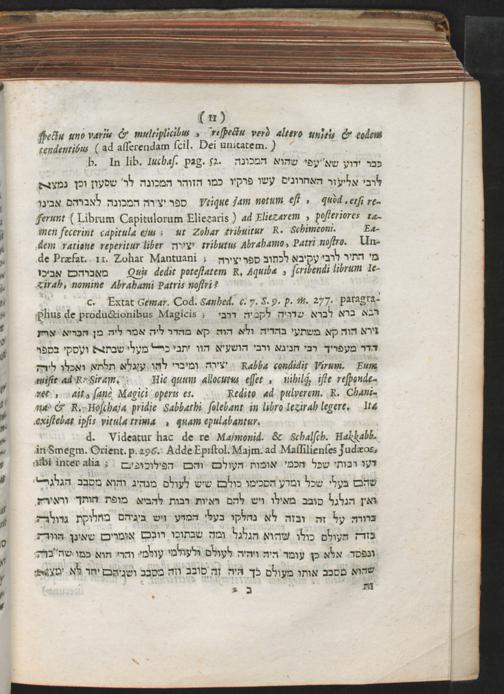 ( 11 )
spectu uno variis & multiplicibus , respectu verò altero unitis & eodem
tendentibus ( ad asserendam scil. Dei unitatem. )
b. In lib. Iuchas. pag. 52. כבר ידוע שא״עפי שהוא המכונה
לרבי אליעזר האחרונים עשו פרקיו כמו הזוהר המכונה לר׳ שמעון וכן נמצא
ספר יצירה המכונה לאברהם אבינו Utique jam notum est , quòd, etsi re-
ferunt ( Librum Capitulorum Eliezaris ) ad Eliezarem , posteriores ta-
men fecerint capitula ejus ; ut Zohar tribuitur R. Schimeoni. Ea-
dem ratione reperitur liber יצירה tributus Abrahamo, Patri nostro. Un-
de Præfat. 11. Zohar Mantuani : מי התיר לרבי עקיבא לכתוב ספר יצירה
מאברהם אבינו Quis dedit potestatem R. Aquibæ , scribendi librum Ie-
zirah, nomine Abrahami Patris nostri ?
c. Extat Gemar. Cod. Sanhed. c. 7. S. 9. p. m. 277. paragra-
phus de productionibus Magicis ; רבא ברא לברא שדריה לקמיה דרבי
זירא הוה קא משתעי בהדיה ולא הוה קא מהדר ליה אמר ליה מן חבריא את
הדר מעפריך רבי חנינא ורבי הושעיא הוו יתבי כל מעלי שבתא ועסקי בספר
יצירה ומיברי להו עיגלא תלתא ואכלו ליה Rabba condidit Virum. Eum
misit ad R. Siram. Hic quum allocutus esset , nihilq́; iste responde-
ret , ait, sanè Magici operis es. Redito ad pulverem. R. Chani-
na & R. Hoschaja pridie Sabbathi solebant in libro Iezirah legere. Ita
existebat ipsis vitula trima , quam epulabantur.
d. Videatur hac de re Majmonid. & Schalsch. Hakkabb.
in Smegm. Orient. p. 296. Adde Epistol. Majm. ad Massilienses Judæos,
ubi inter alia : דעו רבותי שכל חכמי אומות העולם והם הפילוסופים
שהם בעלי שכל ומדע הסכימו כולם שיש לעולם מנהיג והוא מסבב הגלגל
ואין הגלגל סובב מאליו ויש להם ראיות רבות להביא מופת חותך וראיה
ברורה על זה ובזה לא נחלקו בעלי המדע ויש ביניהם מחלוקת גדולה
בזה העולם כולו שהוא הגלגל ומה שבתוכו רובם אומרים שאינן הווה
ונפסד אלא כן עומד היה ויהיה לעולם ולעולמי עולמי והרי הוא כמו שה״בה
שהוא מסבב אותו מעולם כך היה זה סובב וזה מסבב ושניהם יחד לא ימצא
ב 2 זה